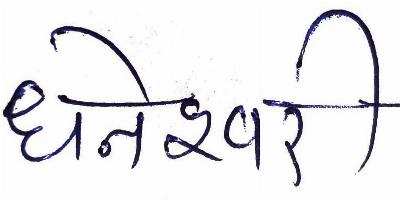 धनेश्वरी